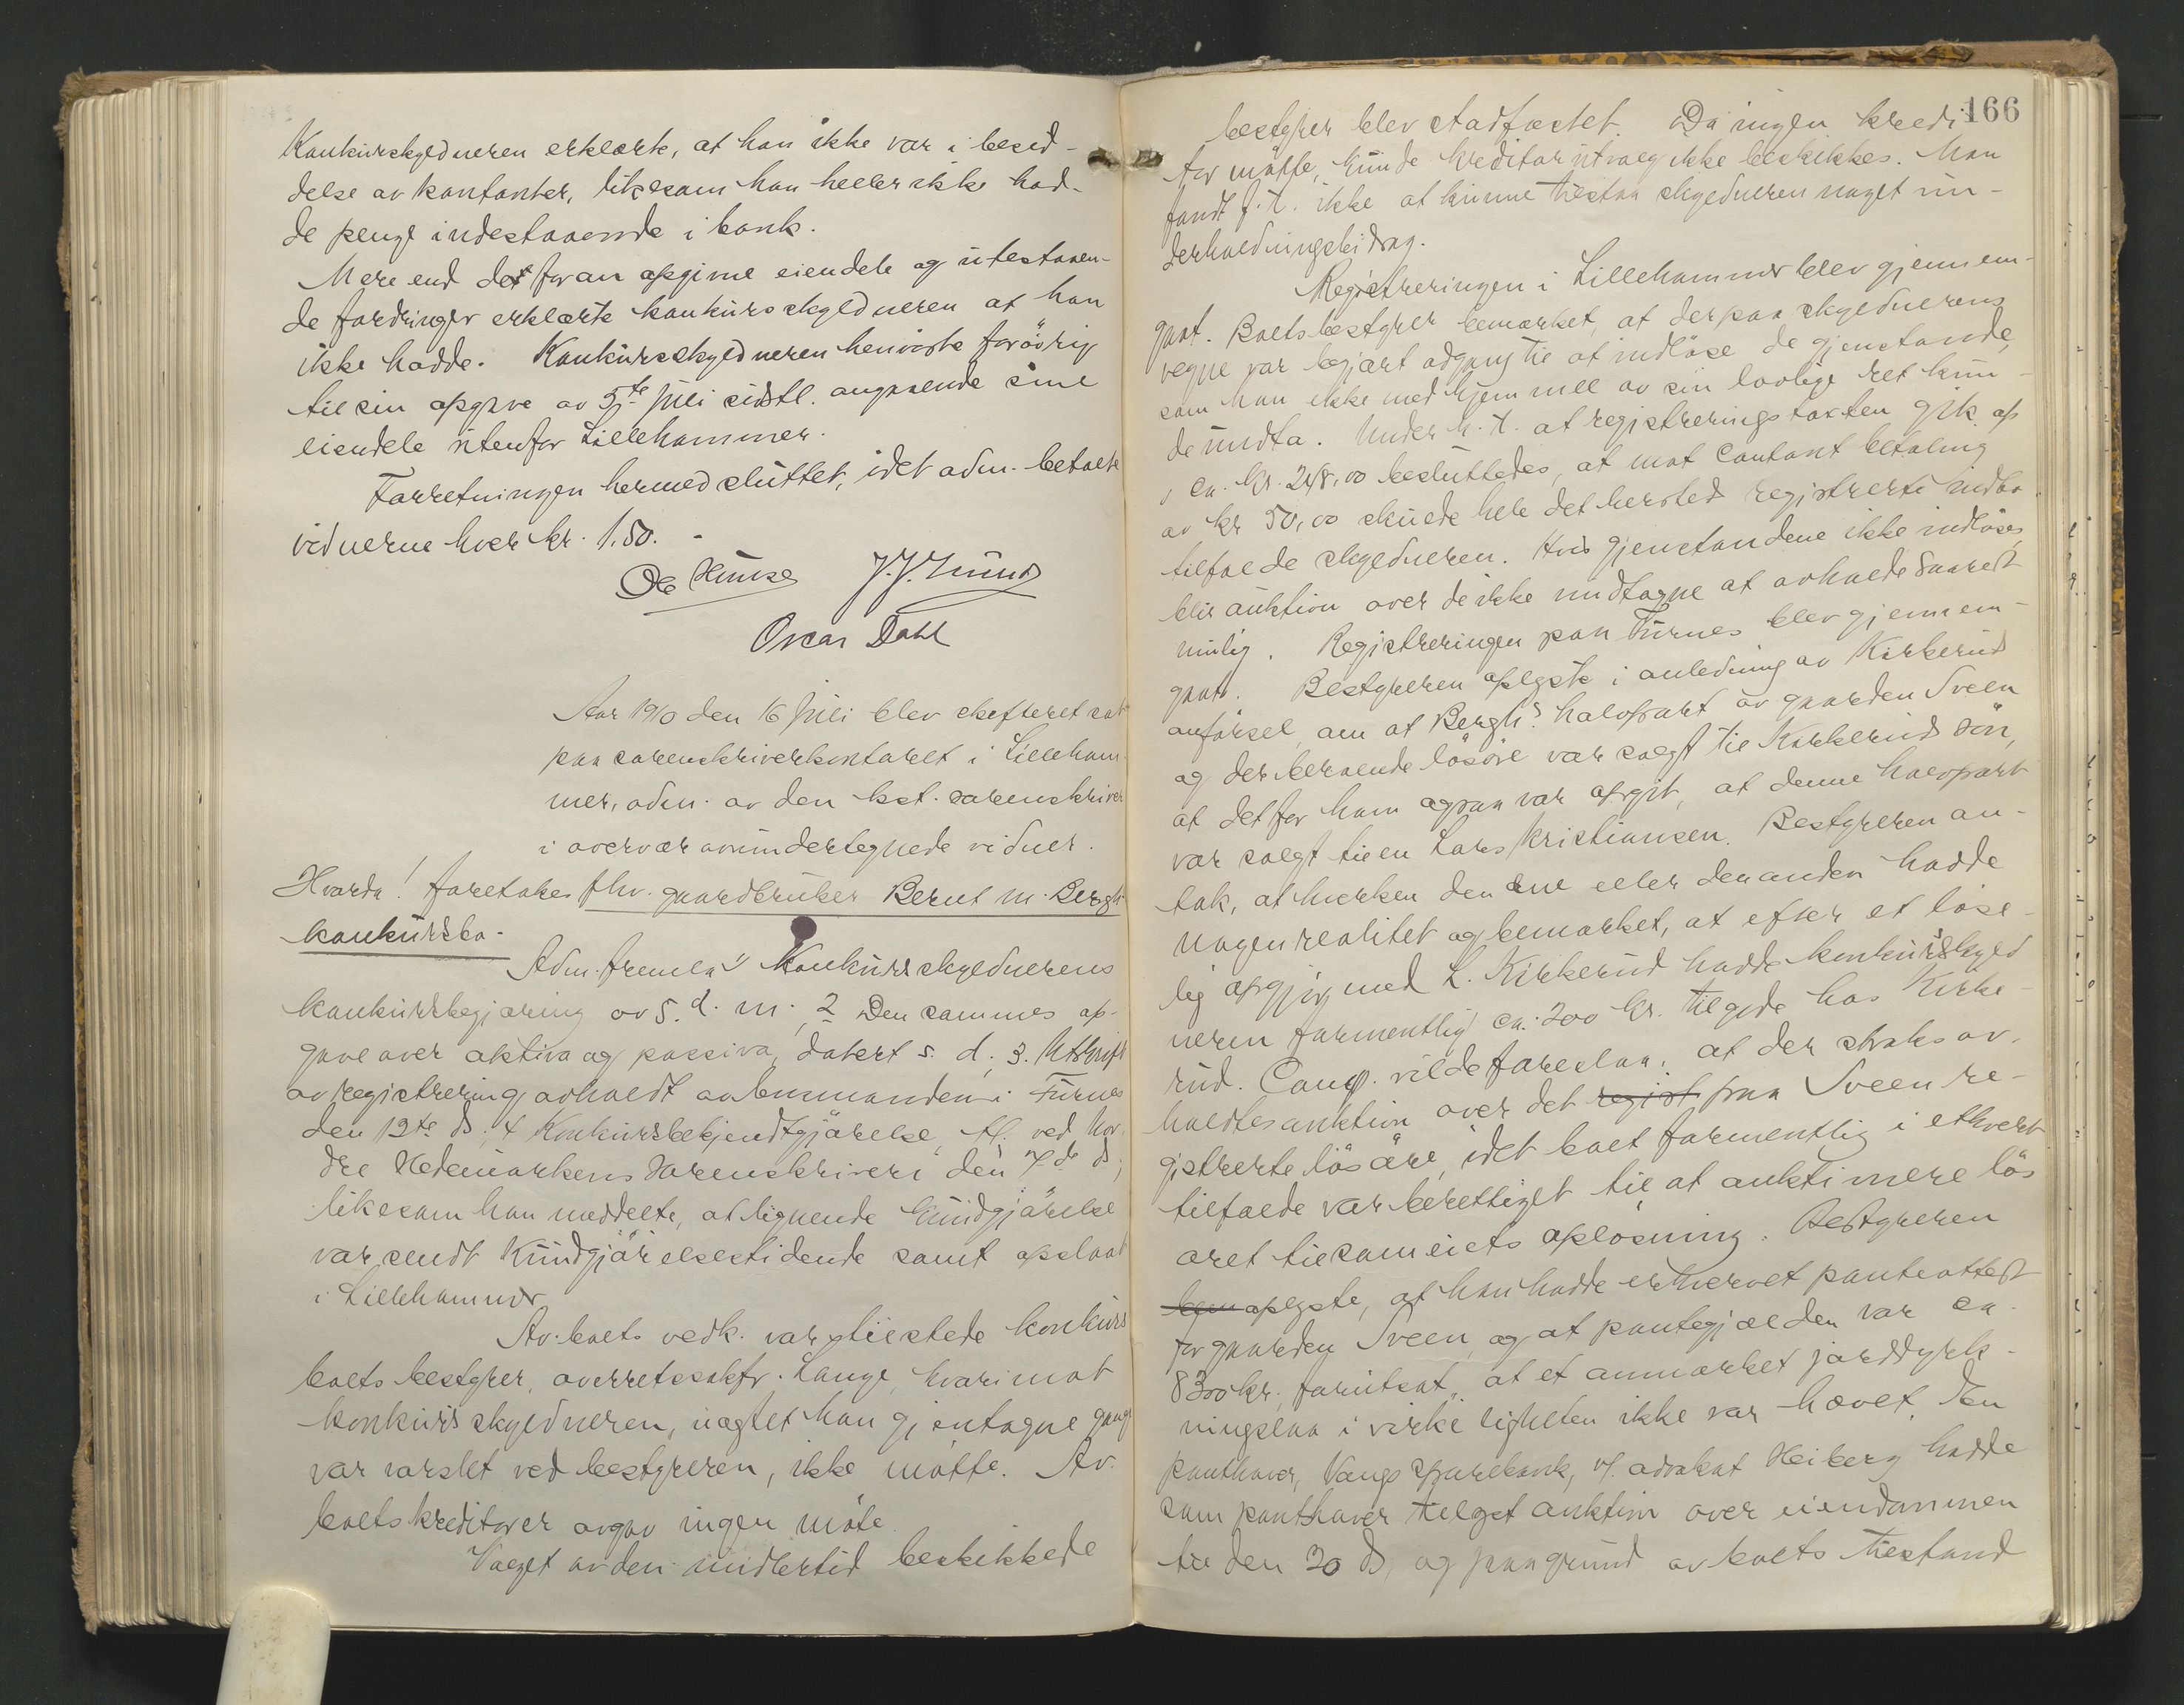 Konkursskyldneren erklærte, at han ikke var i besid-
delse av kontanter, likesom han heller ikke had-
de penge indestaaende i bank.
Mere end det foran opgivne eiendele og utestaaen-
de fordringer erklærte konkursskyldneren at han
ikke hadde. Konkursskyldneren henviste forövrig
til sin opgave av 5te juli sidstl. angaaende sine
eiendele utenfor Lillehammer.
Forretningen hermed sluttet, idet adm. betalte
vidnerne hver kr. 1.50. -
Oscar Dahl
Aar 1910 den 16 juli blev skifteret sat
paa sorenskriverkontoret i Lilleham-
mer, adm. av den kst. sorenskriver
i overvær av undertegnede vidner.
Hvorda! foretokes fhv. gaardbruker Bernt M. Bergh
konkursbo.
Adm. fremla 1 Konkursskyldnerens
konkursbegjæring av 5. d. m. 2 Den sammes op-
gave over aktiva og passiva, datert s. d. 3. Utskrift
av registrering avholdt av lensmanden i Furnes
den 12te ds. 4 Konkursbekjendtgjörelse tl. ved Nor-
dre Hedemarkens Sorenskriveri den 7de ds,
likesom han meddelte, at lignende kundgjörelse
var sendt Kundgjörelsestidende samt opslaat
i Lillehammer
Av boets vedk. var tilstede konkurs
boets bestyrer, overretssakfr. Lange, hvorimot
konkursskyldneren, uagtet han gjentagne gange
var varslet ved bestyreren, ikke mötte. Av
boets kreditorer avgav ingen möte.
Valget av den midlertid beskikkede
166
bestyrer blev stadfæstet. Da ingen kredi-
tor mötte, kunde kreditorutvalg ikke beskikkes. Man
fandt f. t. ikke at kunne tilstaa skyldneren noget un-
derholdningsbidrag.
Registreringen i Lillehammer blev gjennem-
gaat. Boets bestyrer bemærket, at der paa skyldnerens
vegne var begjært adgang til at indlöse de gjenstande,
som han ikke med hjemmel av sin lovlige ret kun-
de undta. Under h. t. at registreringstaxten gik op
i ca. kr. 248,00 besluttedes, at mot contant betaling
av kr 50,00 skulde hele det hersted registrerte indbo
tilfalde skyldneren. Hvis gjenstandene ikke indlöses
blir auktion over de ikke undtagne at avholde snarest
mulig. Registreringen paa Furnes blev gjennem-
gaat. Bestyreren oplyste i anledning av Kirkerud
anförsel, om at Bergh's halvpart av gaarden Sveen
og der beroende lösöre var solgt til Kirkeruds sön,
at det for ham ogsaa var opgit, at denne halvpart
var solgt til en Lars Kristiansen. Bestyreren an-
tok, at hverken den ene eller den anden hadde
nogen realitet og bemærket, at efter et löse-
lig opgjör med L. Kirkerud hadde konkursskyld
neren formentlig ca. 200 kr. tilgode hos Kirke-
rud. Comp. vilde foreslaa, at der straks av-
holdtes auktion over det regist paa Sveen re-
gistrerte lösöre, idet boet formentlig i ethvert
tilfælde var berettiget til at auktionere lös
öret til sameiets oplösning. Bestyreren
bem oplyste, at han hadde erhvervet panteattest
for gaarden Sveen, og at pantegjælden var ca.
8300 kr, forutsat, at et anmærket jorddyrk-
ningslaan i virkeligheten ikke var hævet. En
panthaver, Vangs Sparebank, v/ advokat Heiberg hadde
som panthaver tillyst auktion over eiendommen
til den 30 ds, og paa grund av boets tilstand